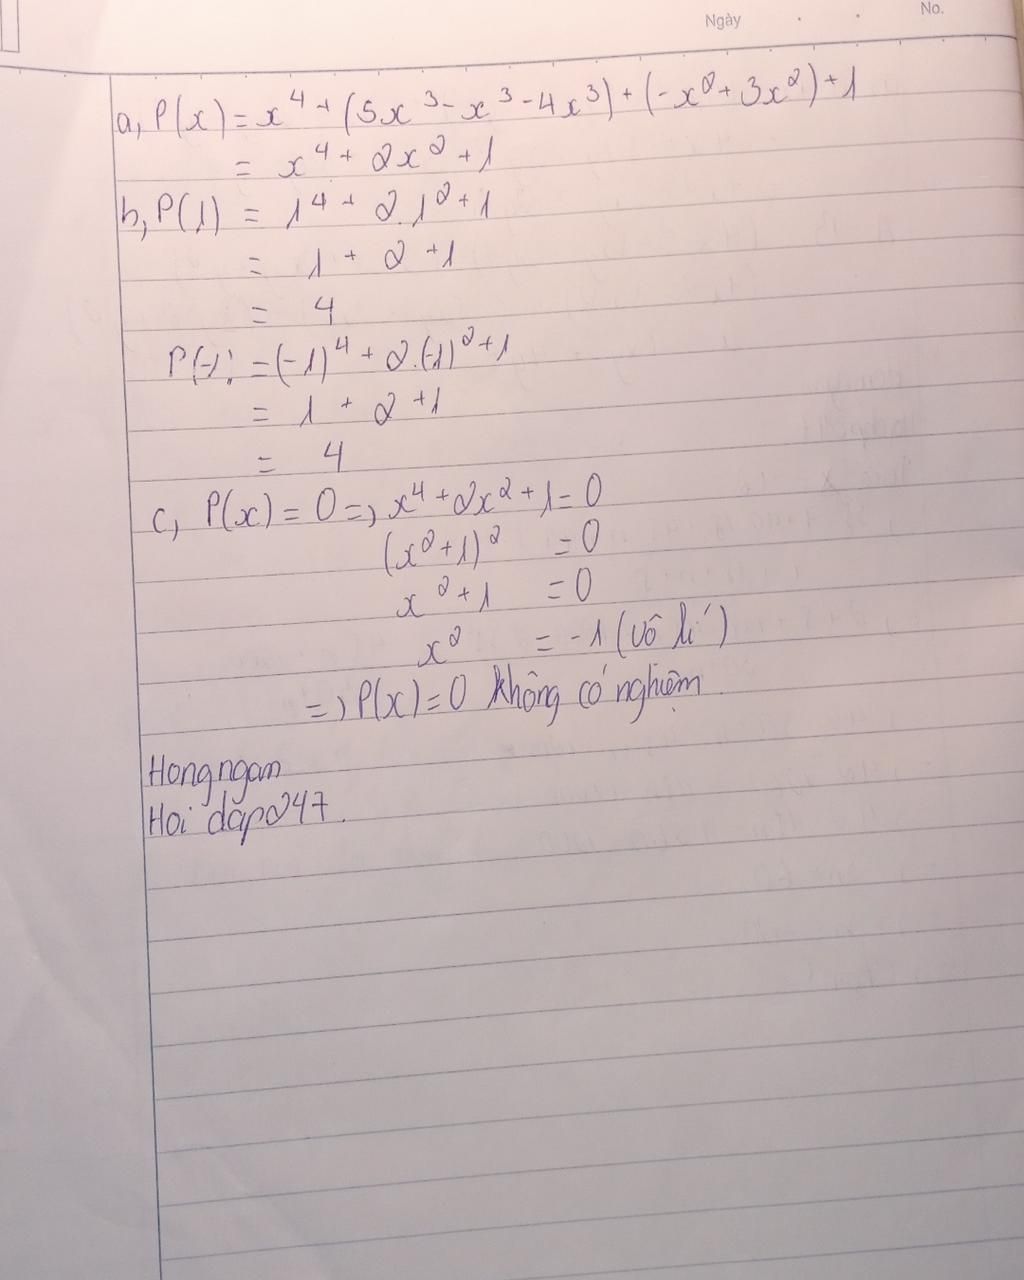 Ngày . . No.
a, P(x) = x⁴ + (5x³ - x³ - 4x³) + (-x² + 3x²) + 1
= x⁴ + 2x² + 1
b, P(1) = 1⁴ + 2.1² + 1
= 1 + 2 + 1
= 4
P(-1) = (-1)⁴ + 2.(-1)² + 1
= 1 + 2 + 1
= 4
c, P(x) = 0 => x⁴ + 2x² + 1 = 0
(x² + 1)² = 0
x² + 1 = 0
x² = -1 (vô lí)
=> P(x) = 0 không có nghiệm
Hongngan
Hoi dap247.